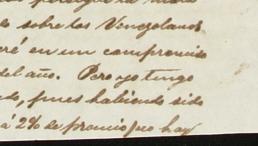 sobre los Venezolanos
en un compromiso
del año. Pero yo tengo
pues habiendo sido
á 2% de premio, no hay